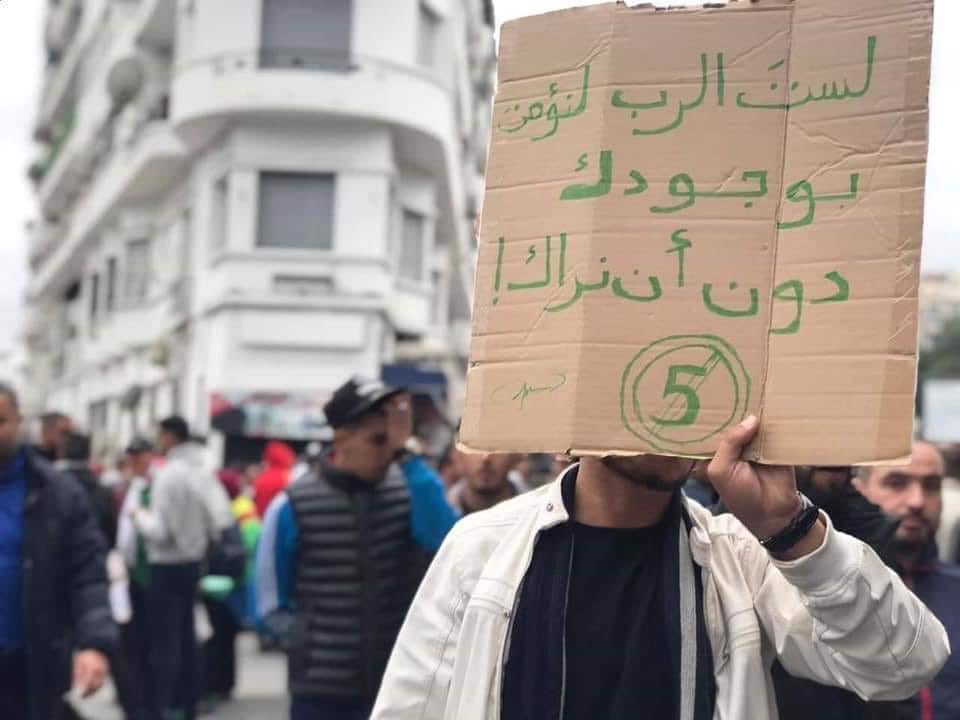 لستَ الرب لنؤمن
بوجودك
دون أن نراك!
5